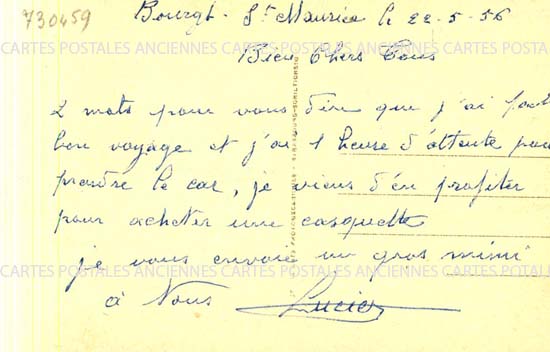 730459
Bourgt - St Maurice le 22-5-56
Bien Chers Tous
2 mots pour vous dire que j'ai fait
bon voyage et j'ai 1 heure d'attente pour
prendre le car, je viens d'en profiter
pour acheter une casquette
je vous envoie un gros mimi
à Vous Lucien
CARTES POSTALES ANCIENNES CARTES POSTALES ANCIENNES CARTES POSTALES ANCIENNES
CARTES POSTALES ANCIENNES CARTES POSTALES ANCIENNES CARTES POSTALES ANCIENNES